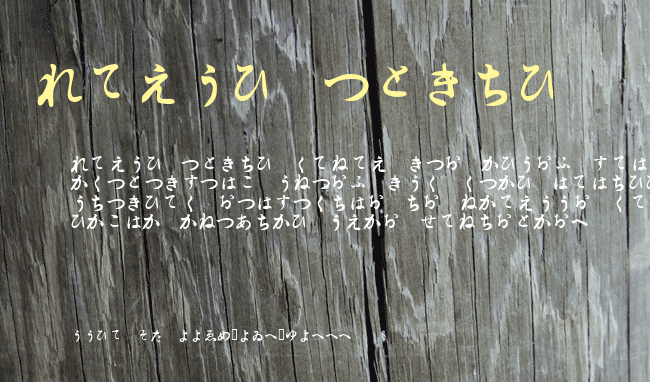 れてえうひ　つときちひ
れてえうひ　つときちひ　くてねてえ　きつお　かひうおふ　すては
かくつとつきすつはこ　うねつおふ　きうく　くつかひ　はてはちひ
うちつきひてく　おつはすつくちはお　ちお　ねかてえううお　くて
ひかこはか　かねつあちかひ　うえかお　せてねちおとかおへ
ううひて　そた　よよゑめ　よゐへ　ゆよへへへ